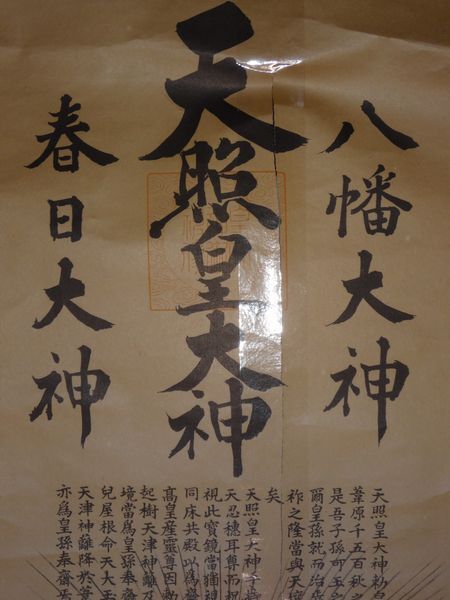 八幡大神
天照皇大神
春日大神
天照皇大神勅
葦原千五百秋之
是吾子孫可王之
爾皇孫就而治
祚之隆當與天壤
矣
天照皇大神手持
天忍穗耳尊而祝
視此寶鏡當猶視
同床共殿以爲齋
高皇産靈尊因勅
起樹天津神籬及
境當爲皇孫奉齋
兒屋根命天太玉
天津神籬降於葦
亦爲皇孫奉齋焉